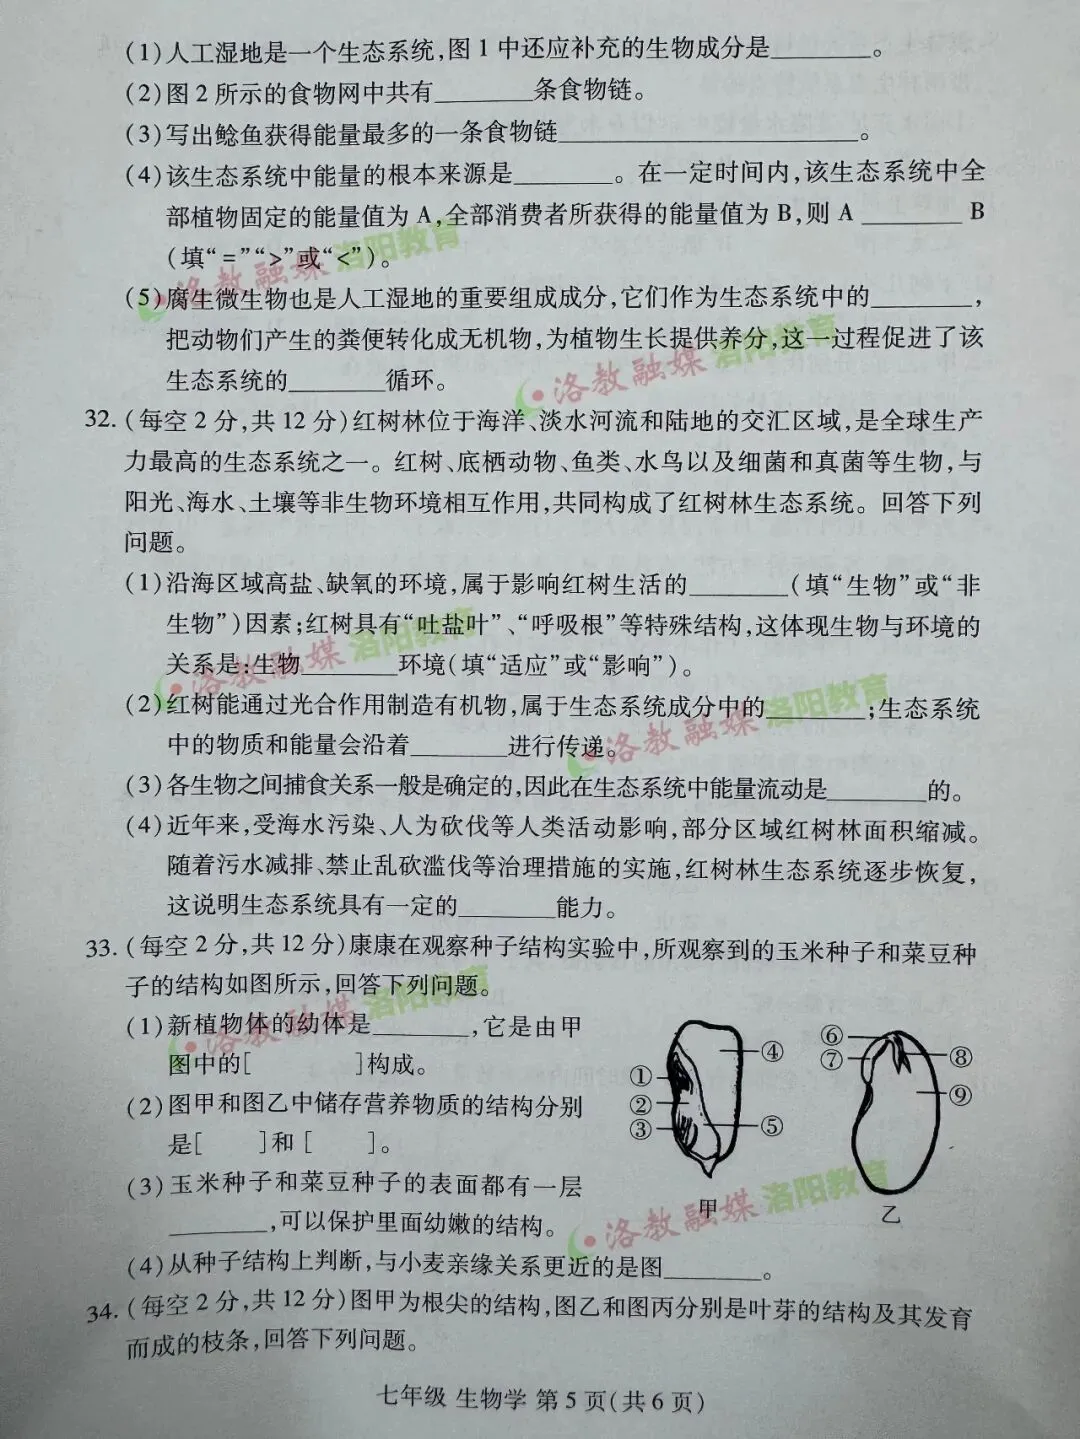 (1)人工湿地是一个生态系统,图1中还应补充的生物成分是________。
(2)图2所示的食物网中共有________条食物链。
(3)写出鲶鱼获得能量最多的一条食物链________________________。
(4)该生态系统中能量的根本来源是________。在一定时间内,该生态系统中全
部植物固定的能量值为A,全部消费者所获得的能量值为B,则A ________ B
(填“=”“>”或“<”)。
(5)腐生微生物也是人工湿地的重要组成成分,它们作为生态系统中的________,
把动物们产生的粪便转化成无机物,为植物生长提供养分,这一过程促进了该
生态系统的________循环。
32.(每空2分,共12分)红树林位于海洋、淡水河流和陆地的交汇区域,是全球生产
力最高的生态系统之一。红树、底栖动物、鱼类、水鸟以及细菌和真菌等生物,与
阳光、海水、土壤等非生物环境相互作用,共同构成了红树林生态系统。回答下列
问题。
(1)沿海区域高盐、缺氧的环境,属于影响红树生活的________(填“生物”或“非
生物”)因素;红树具有“吐盐叶”、“呼吸根”等特殊结构,这体现生物与环境的
关系是:生物________环境(填“适应”或“影响”)。
(2)红树能通过光合作用制造有机物,属于生态系统成分中的________;生态系统
中的物质和能量会沿着________进行传递。
(3)各生物之间捕食关系一般是确定的,因此在生态系统中能量流动是________的。
(4)近年来,受海水污染、人为砍伐等人类活动影响,部分区域红树林面积缩减。
随着污水减排、禁止乱砍滥伐等治理措施的实施,红树林生态系统逐步恢复,
这说明生态系统具有一定的________能力。
33.(每空2分,共12分)康康在观察种子结构实验中,所观察到的玉米种子和菜豆种
子的结构如图所示,回答下列问题。
(1)新植物体的幼体是________,它是由甲
图中的[        ]构成。
(2)图甲和图乙中储存营养物质的结构分别
是[    ]和[    ]。
(3)玉米种子和菜豆种子的表面都有一层
________,可以保护里面幼嫩的结构。
(4)从种子结构上判断,与小麦亲缘关系更近的是图________。
①
②
③
④
⑤
甲
⑥
⑦
⑧
⑨
乙
34.(每空2分,共12分)图甲为根尖的结构,图乙和图丙分别是叶芽的结构及其发育
而成的枝条,回答下列问题。
七年级 生物学 第5页(共6页)
洛教融媒 洛阳教育
洛教融媒 洛阳教育
洛教融媒 洛阳教育
洛教融媒 洛阳教育
洛教融媒 洛阳教育
洛教融媒 洛阳教育